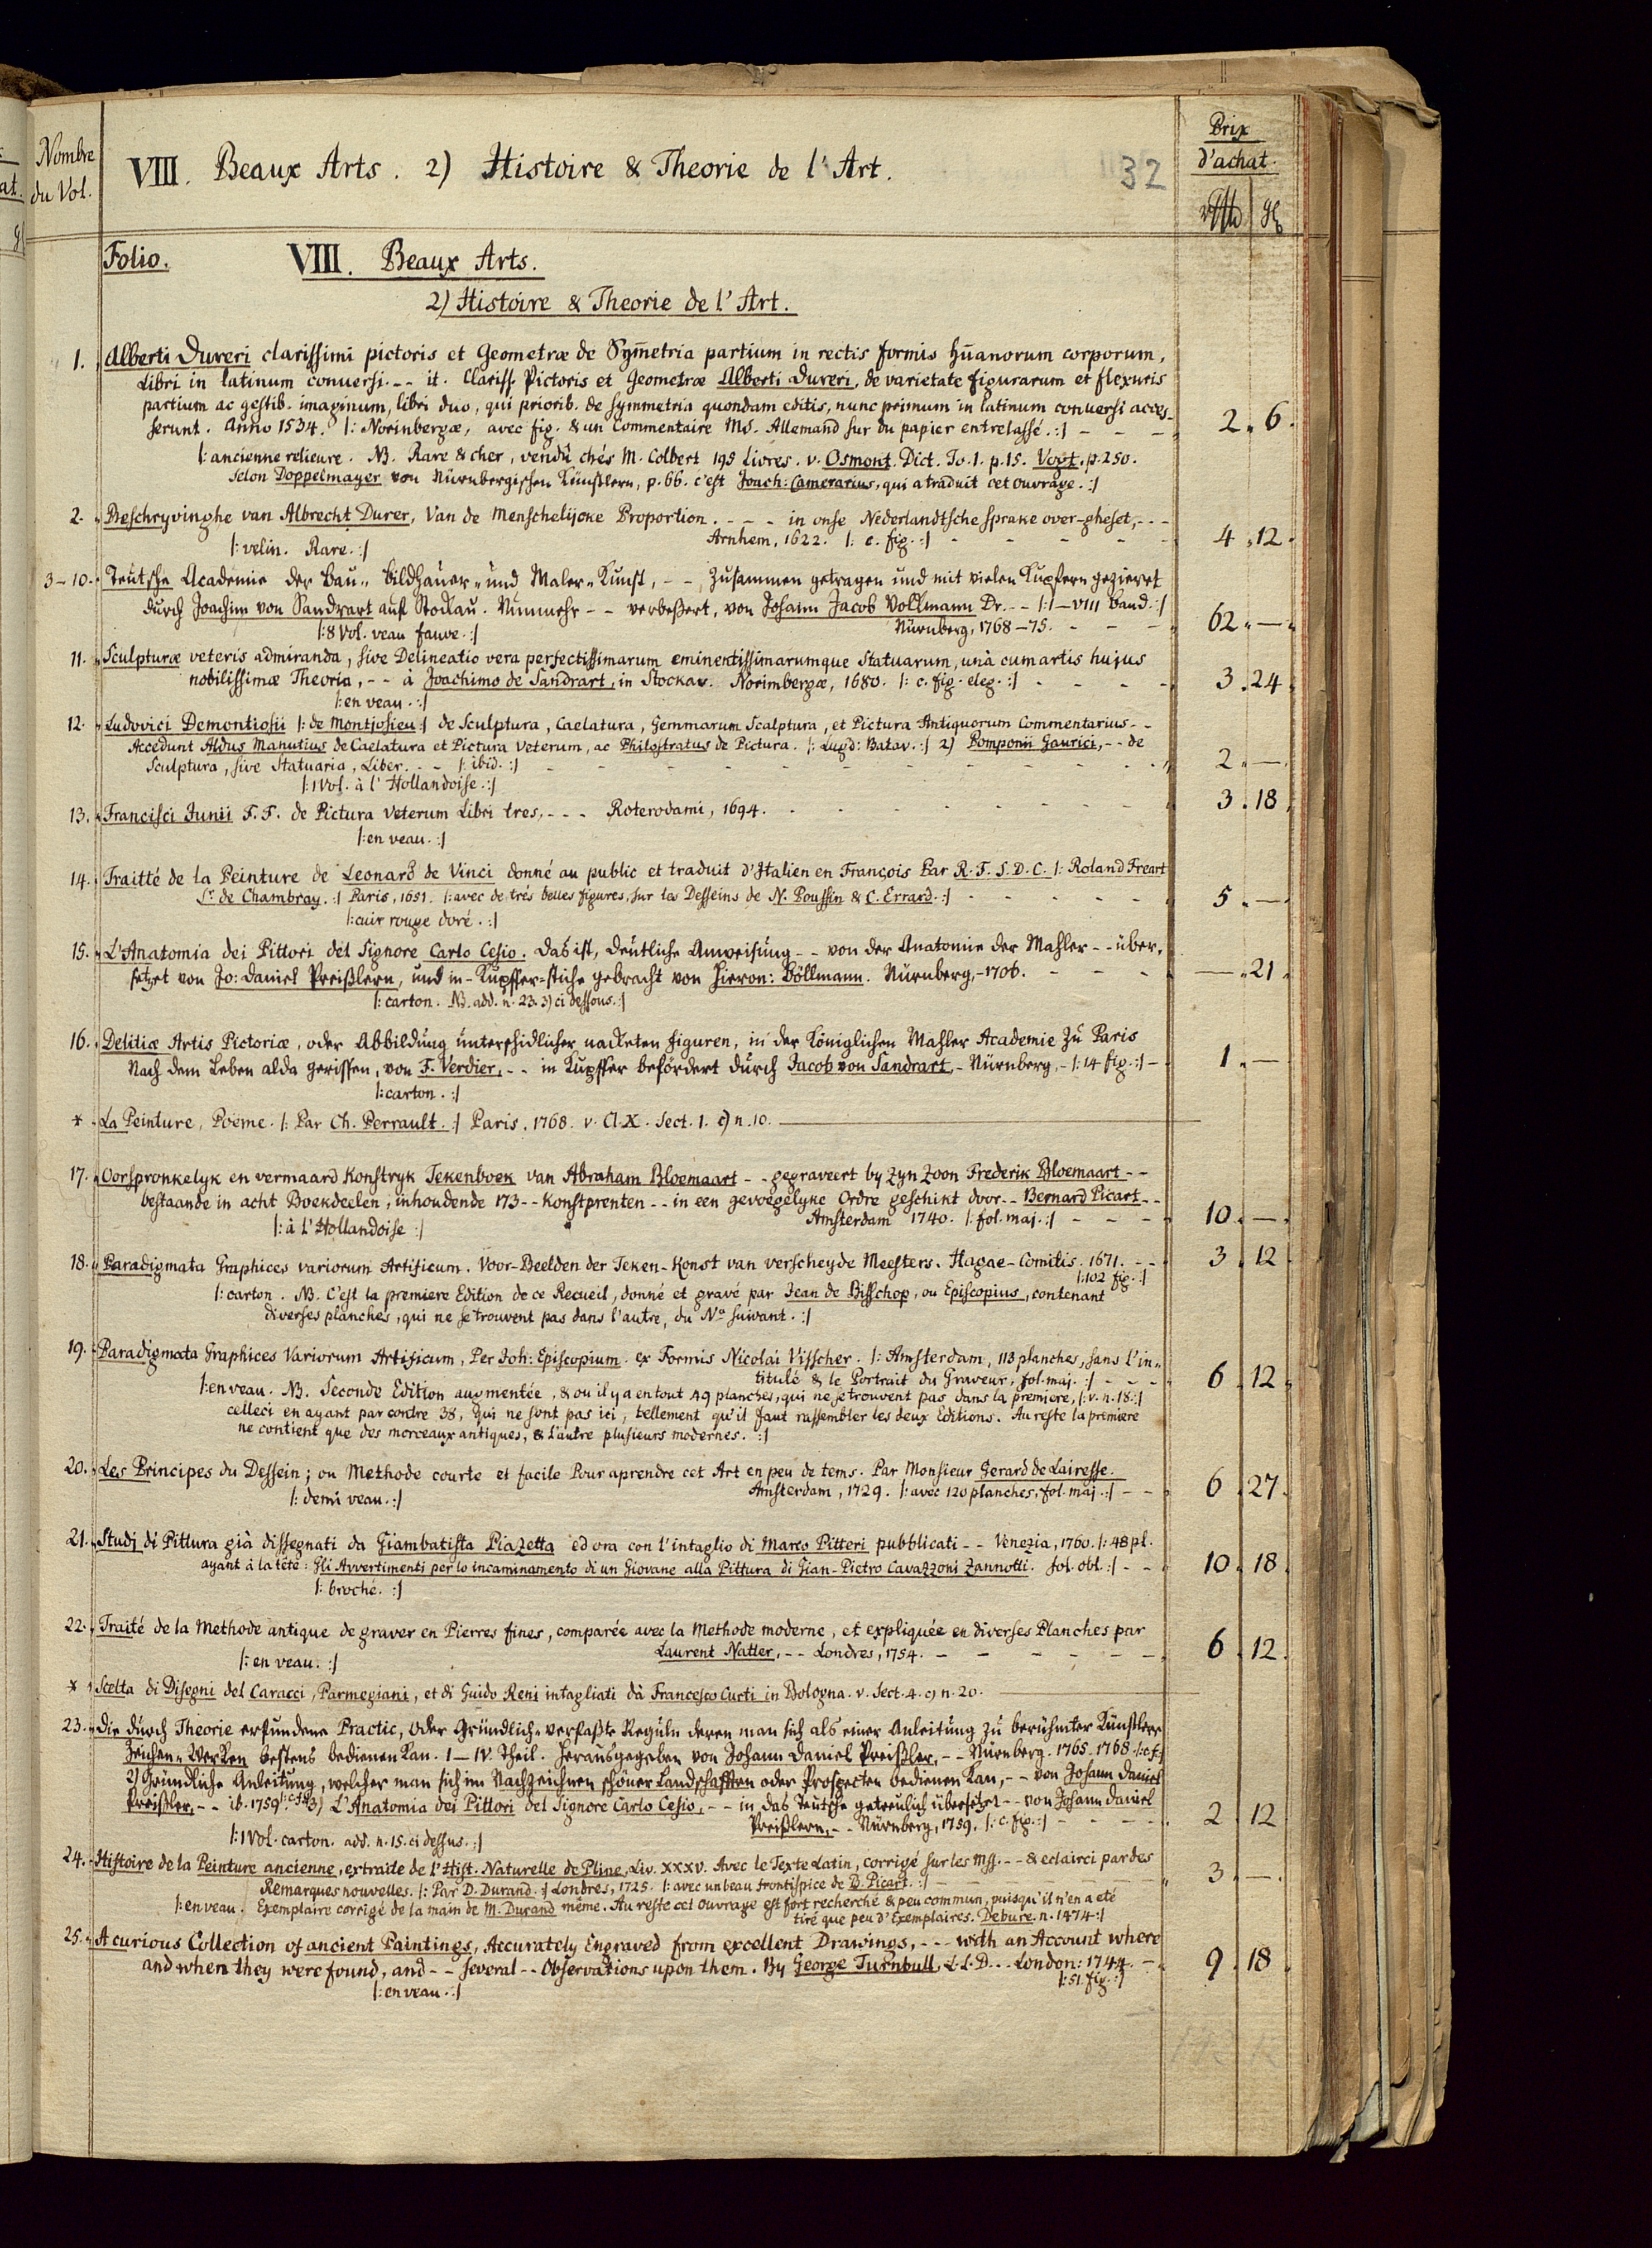 Nombre
du Vol.
VIII. Beaux Arts. 2) Histoire & Theorie de l'Art.
32
Prix
d'achat.
Folio. VIII. Beaux Arts.
2) Histoire & Theorie de l'Art.
1. Alberti Dureri clarissimi pictoris et Geometræ de Sym̄etria partium in rectis formis hūanorum corporum,
Libri in latinum conuersi. - - it. Clariss. Pictoris et Geometræ Alberti Dureri, de varietate figurarum et flexuris
partium ac gestib. imaginum, libri duo, qui priorib. de symmetria quondam editis, nunc primum in latinum conuersi acces-
serunt. Anno 1534. |: Norinbergæ, avec fig. & un Commentaire Ms. Allemand sur du papier entrelassé. :| - - - 2. 6.
|: ancienne relieure. NB. Rare & cher, vendû chés M. Colbert 195 Livres. v. Osmont. Dict. To. 1. p. 15. Vogt. p. 250.
selon Doppelmayer von Nürnbergischen Künstlern, p. 66. c'est Joach: Camerarius, qui a traduit cet ouvrage. :|
2. Beschryvinghe van Albrecht Durer, Van de Menschelijcke Proportion. - - - in onse Nederlandtsche sprake over-gheset, - - -
Arnhem, 1622. |: c. fig. :| - - - - - 4. 12.
|: velin. Rare. :|
3-10. Teutsche Academie der Bau- Bildhauer- und Maler-Kunst, - - Zusammen getragen und mit vielen Kupfern gezieret
durch Joachim von Sandrart auf Stockau. Nunmehr - - verbeßert, von Johann Jacob Volkmann Dr. - - |: I-VIII Band. :|
|: 8 Vol. veau fauve. :| Nürnberg, 1768-75. - - - 62. —.
11. Sculpturæ veteris admiranda, sive Delineatio vera perfectissimarum eminentissimarumque Statuarum, unà cum artis hujus
nobilissimæ Theoria, - - à Joachimo de Sandrart, in Stockau. Norimbergæ, 1680. |: c. fig. eleg. :| - - - - 3. 24.
|: en veau. :|
12. Ludovici Demontiosii |: de Montjosieu :| de Sculptura, Caelatura, Gemmarum Scalptura, et Pictura Antiquorum Commentarius - -
Accedunt Aldus Manutius de Caelatura et Pictura Veterum, ac Philostratus de Pictura. |: Lugd: Batav. :| 2) Pomponii Gaurici, - - de
Sculptura, sive Statuaria, Liber. - - |: ibid. :| - - - - - - 2. —.
|: 1 Vol. à l'Hollandoise. :|
13. Francisci Junii F. F. de Pictura Veterum Libri tres, - - - Roterodami, 1694. - - - - - 3. 18.
|: en veau. :|
14. Traitté de la Peinture de Leonard de Vinci donné au public et traduit d'Italien en François Par R. F. S. D. C. |: Roland Freart
Sr. de Chambray. :| Paris, 1651. |: avec de trés belles figures, sur les Desseins de N. Poussin & C. Errard. :| - - - - 5. —.
|: cuir rouge doré. :|
15. L'Anatomia dei Pittori del Signore Carlo Cesio. Das ist, deutliche Anweisung - - von der Anatomie der Mahler - - über-
setzet von Jo: Daniel Preißlern, und in Kupffer-stiche gebracht von Hieron: Böllmann. Nürnberg, - 1706. - - - - —. 21.
|: carton. NB. add. n. 23. 3) ci dessous. :|
16. Delitiæ Artis Pictoriæ, oder Abbildung unterschidlicher nackcten Figuren, in der Königlichen Mahler Academie zu Paris
Nach dem Leben alda gerissen, von F. Verdier, - - in Kupffer befördert durch Jacob von Sandrart, - Nürnberg. - |: 14 fig. :| - 1. —
|: carton. :|
* La Peinture, Poëme. |: Par Ch. Perrault. :| Paris. 1768. v. Cl. X. Sect. 1. c) n. 10.
17. Oorspronkelyk en vermaard Konstryk Tekenboek van Abraham Bloemaart - - gegraveert by Zyn Zoon Frederik Bloemaart - -
bestaande in acht Boekdeelen, inhoudende 173 - - Konstprenten - - in een gevoegelyke Ordre geschikt door - - Bernard Picart - -
|: à l'Hollandoise :| Amsterdam 1740. |: fol. maj. :| - - - 10. —.
18. Paradigmata Graphices variorum Artificum. Voor-Beelden der Teken-Konst van verscheyde Meesters. Hagae-Comitis. 1671. - - 3. 12
|: 102 fig. :|
|: carton. NB. C'est la premiere Edition de ce Recueil, donné et gravé par Jean de Bisschop, ou Episcopius, contenant
diverses planches, qui ne se trouvent pas dans l'autre, du No. suivant. :|
19. Paradigmata Graphices Variorum Artificum, Per Joh: Episcopium. ex Formis Nicolai Visscher. |: Amsterdam, 113 planches, sans l'in-
titulé & le Portrait du Graveur, fol. maj. :| - - - 6. 12.
|: en veau. NB. Seconde Edition augmentée, & ou il y a en tout 49 planches, qui ne se trouvent pas dans la premiere, |: v. n. 18. :|
celleci en ayant par contre 38, qui ne sont pas ici, tellement qu'il faut rassembler les deux Editions. Au reste la premiere
ne contient que des morceaux antiques, & l'autre plusieurs modernes. :|
20. Les Principes du Dessein; ou Methode courte et facile Pour aprendre cet Art en peu de tems. Par Monsieur Gerard de Lairesse.
|: demi veau. :| Amsterdam, 1729. |: avec 120 planches, fol. maj. :| - - 6. 27.
21. Studj di Pittura già dissegnati da Giambatista Piazetta ed ora con l'intaglio di Marco Pitteri pubblicati - - Venezia, 1760. |: 48 pl.
ayant à la tété: Gli Avvertimenti per lo incaminamento di un Giovane alla Pittura di Gian-Pietro Cavazzoni Zannotti. fol. obl. :| - - 10. 18.
|: broché. :|
22. Traité de la Methode antique de graver en Pierres fines, comparée avec la Methode moderne, et expliquée en diverses Planches par
|: en veau. :| Laurent Natter, - - Londres, 1754. - - - - - - 6. 12.
* Scelta di Disegni del Caracci, Parmegiani, et di Guido Reni intagliati dà Francesco Curti in Bologna. v. Sect. 4. c) n. 20.
23. Die durch Theorie erfundene Practic, Oder Gründlich-verfaßte Reguln deren man sich als einer Anleitung zu berühmter Künstlere
Zeichen-Werken bestens bedienen kan. I-IV. Theil. Herausgegeben von Johann Daniel Preißler, - - Nürnberg. 1765-1768. |: c. f. :|
2) Gründliche Anleitung, welcher man sich im Nachzeichnen schöner Landschafften oder Prospecten bedienen kan, - - von Johann Daniel
Preißler, - - ib. 1759. |: c. fig. :| 3) L'Anatomia dei Pittori del Signore Carlo Cesio, - - in das Teutsche getreulich übersetzet - - von Johann Daniel
Preißlern, - - Nürnberg, 1759. |: c. fig. :| - - - - 2. 12
|: 1 Vol. carton. add. n. 15. ci dessus. :|
24. Histoire de la Peinture ancienne, extraite de l'Hist. Naturelle de Pline, Liv. XXXV. Avec le Texte Latin, corrigé sur les Mss. - - & eclairci par des
Remarques nouvelles. |: Par D. Durand. :| Londres, 1725. |: avec un beau frontispice de B. Picart. :| - - - - 3. —.
|: en veau. Exemplaire corrigé de la main de M. Durand même. Au reste cet ouvrage est fort recherché & peu commun, puisqu'il n'en a eté
tiré que peu d'Exemplaires. Debure. n. 1474 :|
25. A curious Collection of ancient Paintings, Accurately Engraved from excellent Drawings, - - - with an Account where
and when they were found, and - - several - - Observations upon them. By George Turnbull, L. L. D. - - London: 1744. - 9. 18
|: en veau. :| |: 51. fig. :|